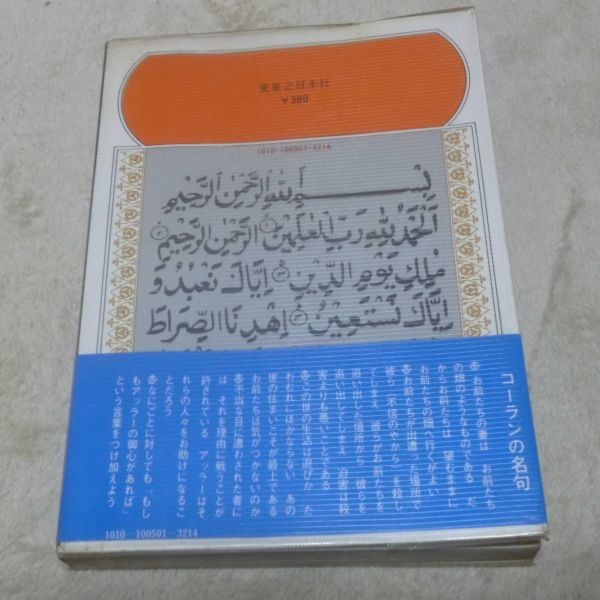 実業之日本社
￥580
1010-100501-3214
بِسْمِ اللهِ الرَّحْمٰنِ الرَّحِيْمِ
اَلْحَمْدُ لِلّٰهِ رَبِّ الْعٰلَمِيْنَ ١ الرَّحْمٰنِ الرَّحِيْمِ ٢
مٰلِكِ يَوْمِ الدِّيْنِ ٣ اِيَّاكَ نَعْبُدُ وَ
اِيَّاكَ نَسْتَعِيْنُ ٤ اِهْدِنَا الصِّرَاطَ
コーランの名句
お前たちの妻は　お前たち
の畑のようなものである　だ
からお前たちは　望むままに
お前たちの畑へ行くがよい
お前たちが出遭った場所で
彼ら（不信のやから）を殺し
てしまえ　彼らがお前たちを
追い出した場所から　彼らを
追い出してしまえ　迫害は殺
害よりも悪いことである
この世の生活は遊びか　た
わむれにほかならない　あの
世の住まいこそが最上である
お前たちは気がつかないのか
不当な目に遭わされた者に
は　それを理由に戦うことが
許されている　アッラーはそ
れらの人々をお助けになるこ
とだろう
なにごとに対しても「もし
もアッラーの御心があれば」
という言葉をつけ加えよう
1010-100501-3214